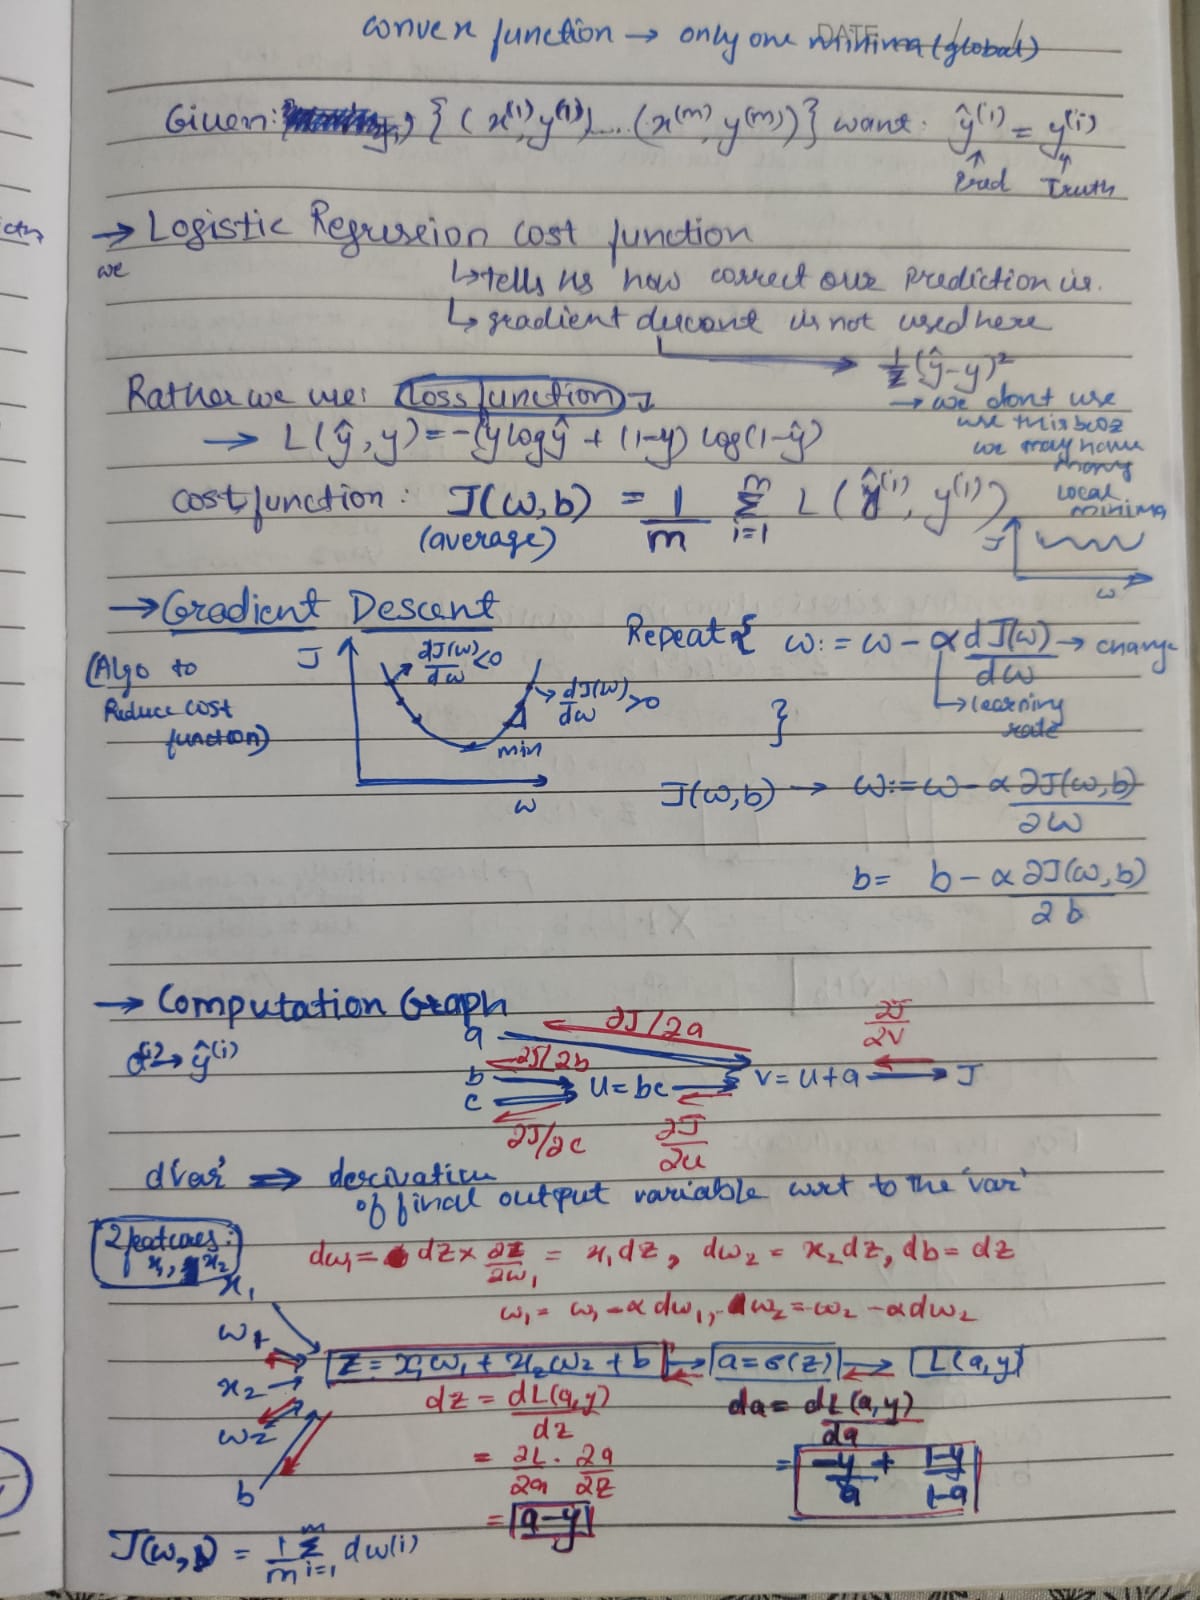 DATE
convex function → only one minima (global)
Given: {(x^(1), y^(1)).... (x^(m), y^(m))} want: ŷ^(i) = y^(i)
Pred Truth
→ Logistic Regression cost function
we
↳ tells us how correct our prediction is.
↳ gradient descent is not used here
1/2 (ŷ-y)²
→ we dont use
this bcoz
we may have
many
local
minima
Rather we use: Loss function
→ L(ŷ, y) = -(y log ŷ + (1-y) log(1-ŷ)
cost function: J(w, b) = 1/m Σ i=1 m L(ŷ^(i), y^(i))
(average)
J
w
→ Gradient Descent
(Algo to
Reduce cost
function)
J
dJ(w)/dw <0
dJ(w)/dw >0
min
w
Repeat { w := w - α dJ(w)/dw → change
↳ learning
rate
}
J(w, b) → w := w - α ∂J(w, b)/∂w
b = b - α ∂J(w, b)/∂b
→ Computation Graph
→ ŷ^(i)
a ∂J/∂a ∂J/∂v
b ∂J/∂b
c u = bc v = u+a → J
∂J/∂c ∂J/∂u
d'var' ⇒ derivative
of final output variable wrt to the 'var'
2 features:
x₁, x₂
dw₁ = dz × ∂z/∂w₁ = x₁dz, dw₂ = x₂dz, db = dz
w₁ = w₁ - α dw₁, w₂ = w₂ - α dw₂
x₁
w₁
x₂
w₂
b
z = x₁w₁ + x₂w₂ + b → a = σ(z) → L(a, y)
dz = dL(a, y)/dz
= ∂L/∂a · ∂a/∂z
= a-y
da = dL(a, y)/da
= -y/a + 1-y/1-a
J(w, b) = 1/m Σ i=1 m dw(i)